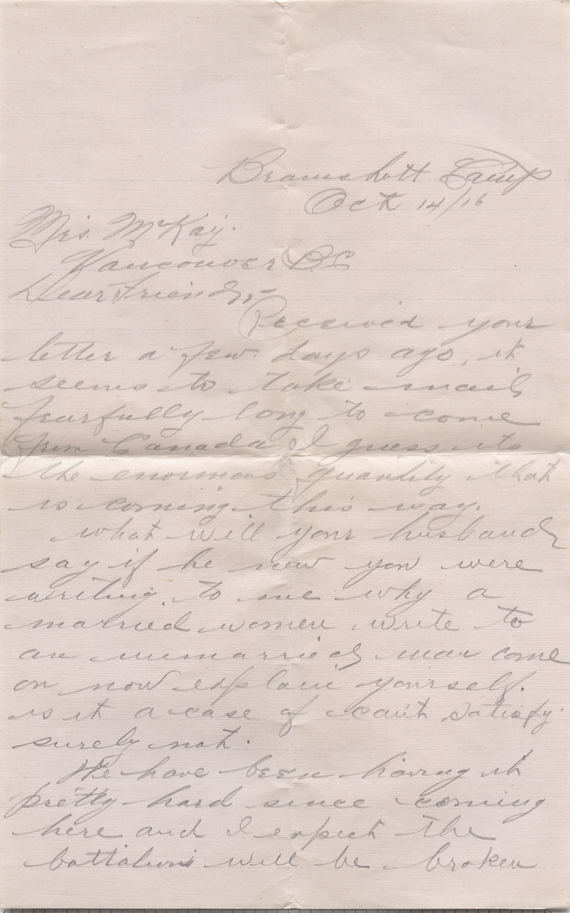 Bramshott Camp
Oct 14/16
Mrs. McKay.
Vancouver BC
Dear Friend,-
Received your
letter a few days ago, it
seems to take mail
fearfully long to come
from Canada I guess its
the enormous quantity that
is coming this way.
what will your husband
say if he new you were
writing to me why a
married women write to
an unmarried man come
on now explain yourself.
is it a case of cant satisfy
surely not.
We have been having it
pretty hard since coming
here and I expect the
battalion will be broken